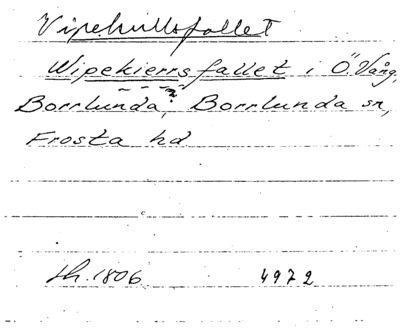 Vipekullsfallet
Wipekierrsfallet i Ö. Vång,
Borrlunda, Borrlunda sn,
Frosta hd
sh. 1806 4972